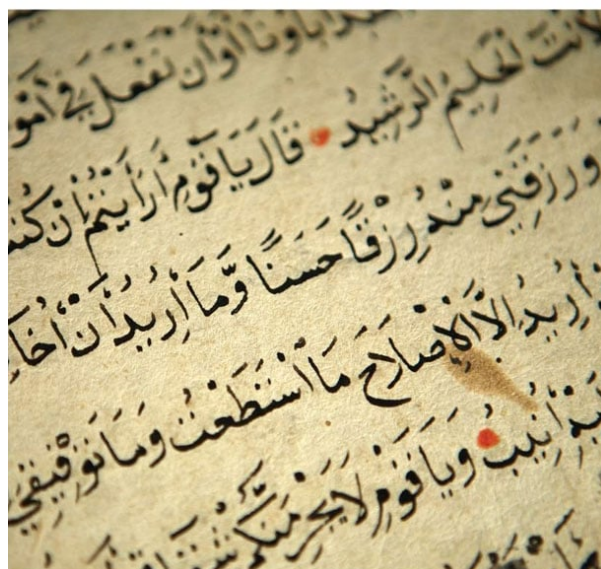 يَعْبُدُ آبَاؤُنَا أَوْ أَنْ نَفْعَلَ فِي أَمْوَ
لَأَنْتَ الْحَلِيمُ الرَّشِيدُ قَالَ يَا قَوْمِ أَرَأَيْتُمْ إِنْ كُنْ
وَرَزَقَنِي مِنْهُ رِزْقًا حَسَنًا وَّمَا أُرِيدُ أَنْ أُخَا
أُرِيدُ إِلَّا الْإِصْلَاحَ مَا اسْتَطَعْتُ وَمَا تَوْفِيقِي
يْهِ أُنِيبُ وَيَا قَوْمِ لَا يَجْرِمَنَّكُمْ شِقَاقِي